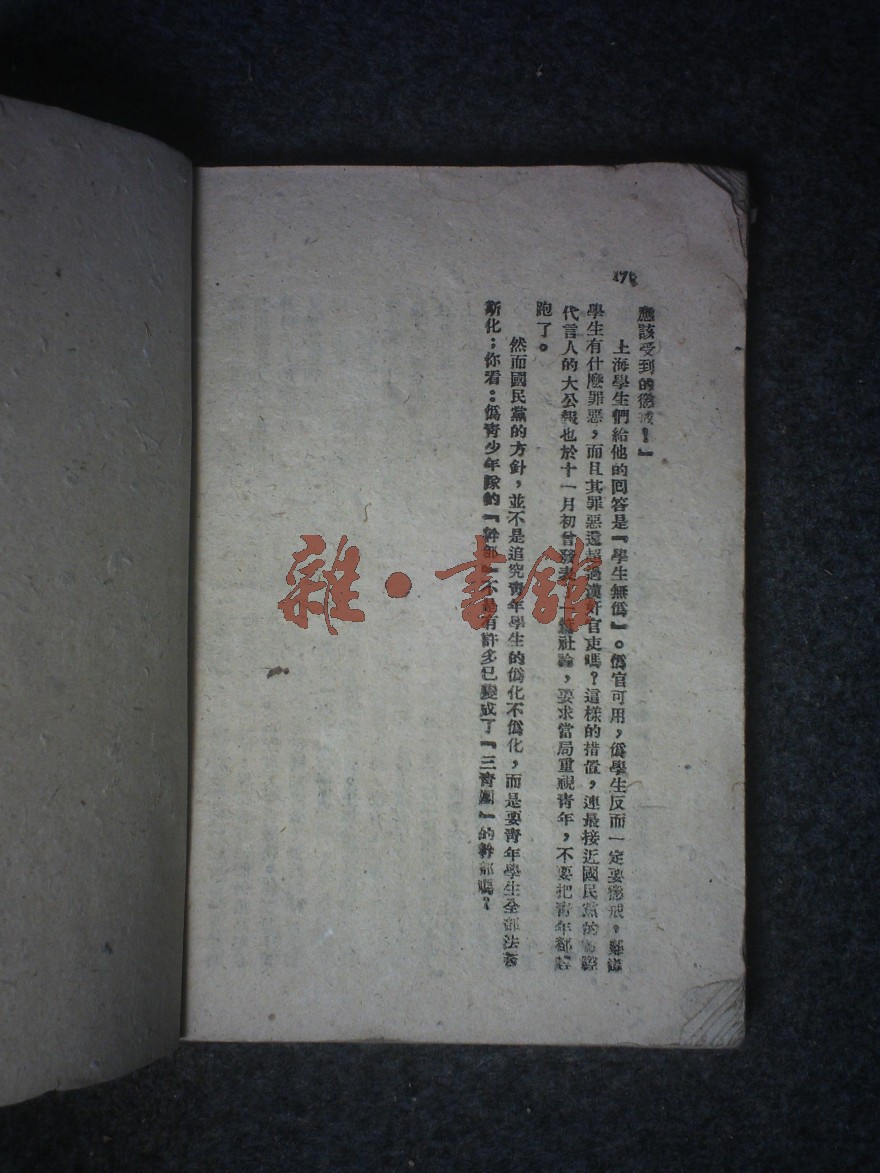 176
應該受到的懲戒！』
上海學生們給他的回答是『學生無僞』。僞官可用，僞學生反而一定要懲戒，難道
學生有什麼罪惡，而且其罪惡還超過漢奸官吏嗎？這樣的措置，連最接近國民黨的
代言人的大公報也於十一月初曾發表一篇社論，要求當局重視青年，不要把青年都
跑了。
然而國民黨的方針，並不是追究青年學生的僞化不僞化，而是要青年學生全部法西
斯化；你看：僞青少年隊的『幹部』不是有許多已變成了『三青團』的幹部嗎？
雜·書館